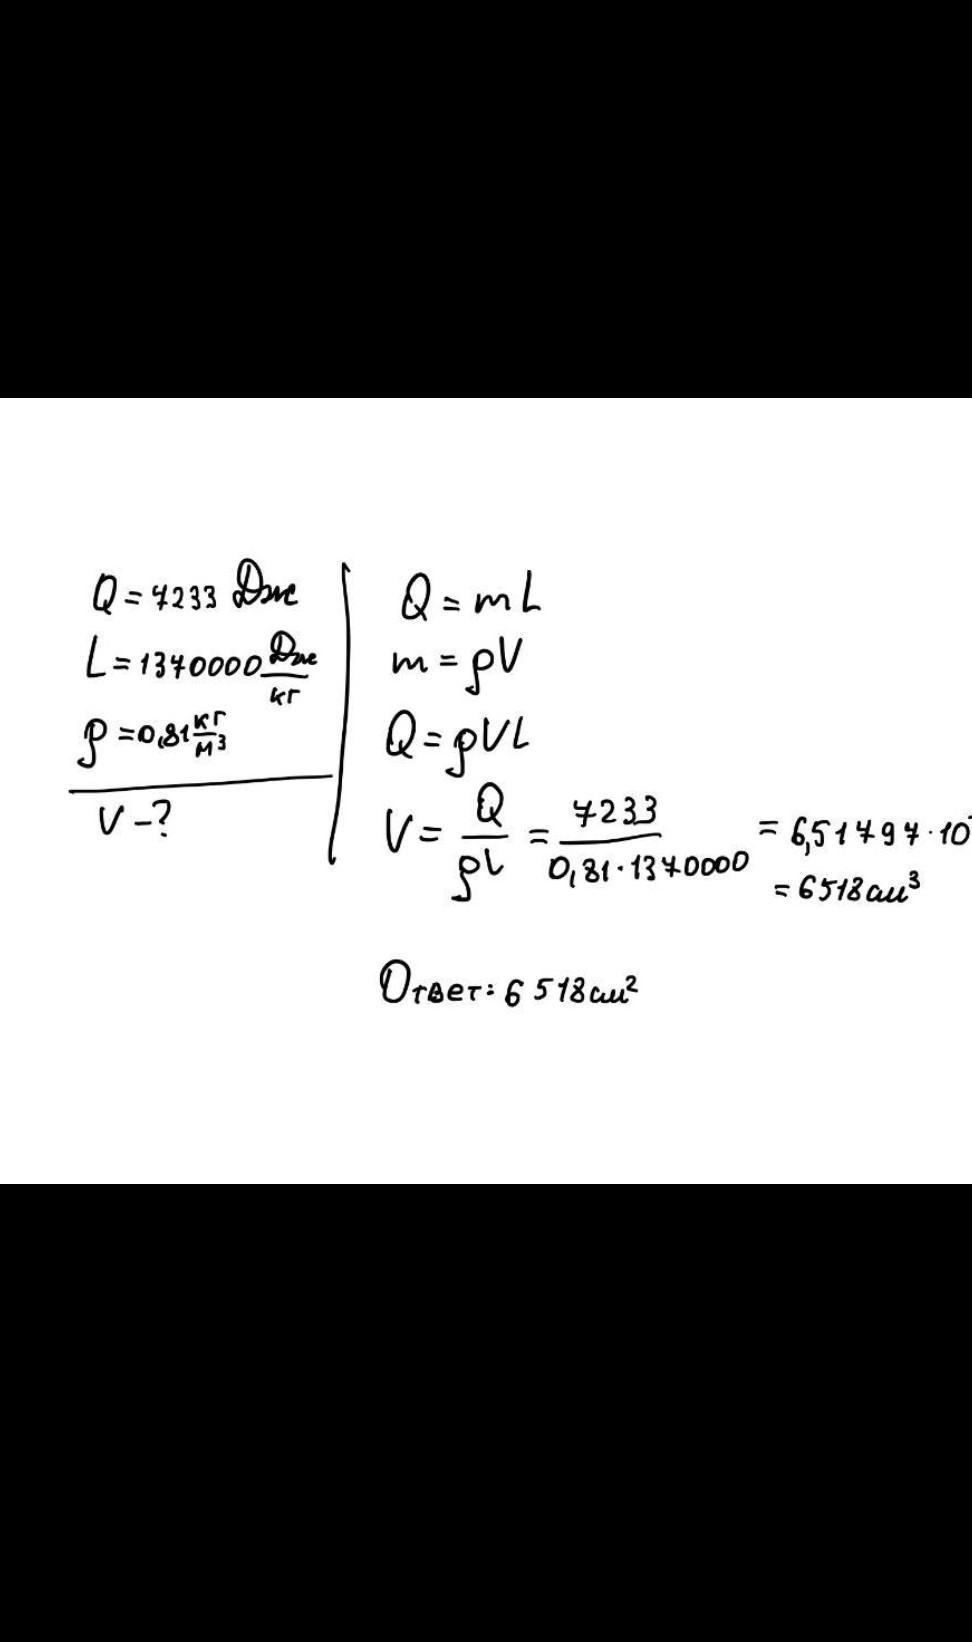 Q = 7233 Дж
L = 1370000 Дж/кг
ρ = 0,81 кг/м³
V - ?
Q = mL
m = ρV
Q = ρVL
V = Q/ρL = 7233/0,81·1370000 = 6,51797·10
= 6518 см³
Ответ: 6518 см²